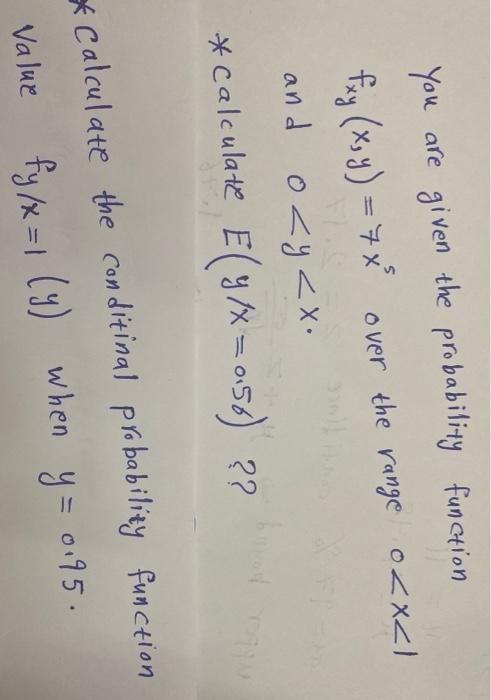 You are given the probability function
fxy (x,y) = 7x⁵ over the range 0<x<1
and 0<y<x.
*calculate E(y/x=0.56) ??
*Calculate the conditinal probability function
Value fy/x=1 (y) when y=0.95.